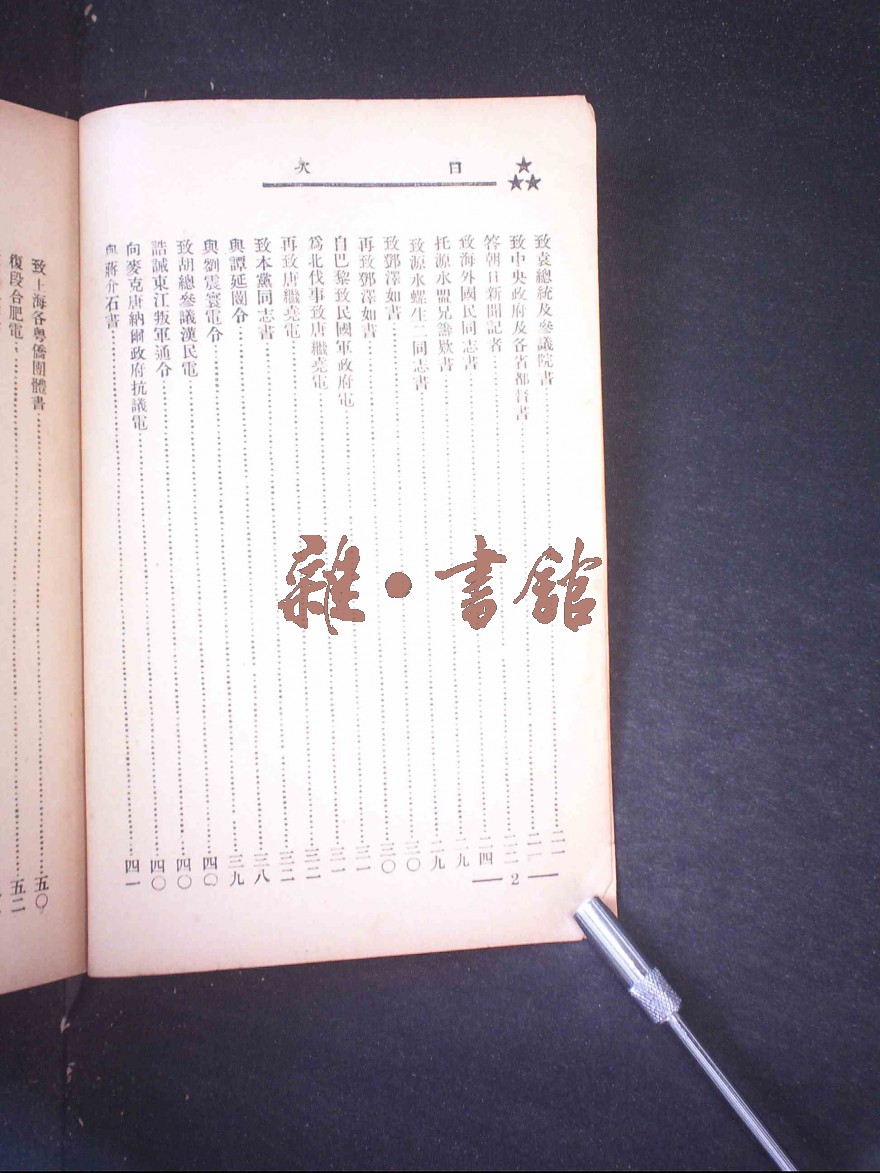 目次
致袁總統及參議院書……二一
致中央政府及各省都督書……二二
答朝日新聞記者……二二
致海外國民同志書……二四
托源水盟兄籌欵書……二九
致源水螺生二同志書……二九
致鄧澤如書……三〇
再致鄧澤如書……三〇
自巴黎致民國軍政府電……三一
為北伐事致唐繼堯電……三二
再致唐繼堯電……三二
致本黨同志書……三二
與譚延闓令……三八
與劉震寰電令……三九
致胡總參議漢民電……四〇
誥誡東江叛軍通令……四〇
向麥克唐納爾政府抗議電……四〇
與蔣介石書……四一
2
致上海各粵僑團體書……五〇
復段合肥電……五二
雜·書館